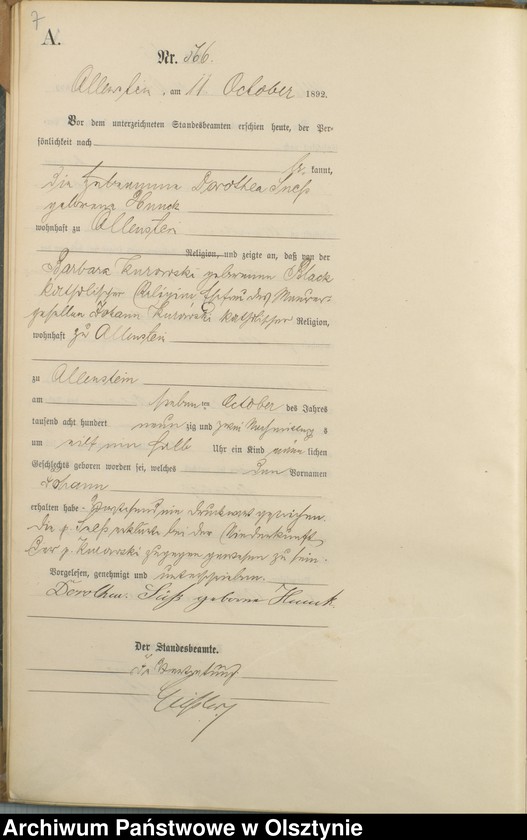 7
A.
Nr. 566.
Allenstein, am 11 October 1892.
Vor dem unterzeichneten Standesbeamten erschien heute, der Per-
sönlichkeit nach
kannt,
die Hebeamme Dorothea Suess
geborene Hunck
wohnhaft zu Allenstein
Religion, und zeigte an, daß von der
Barbara Kurowski geborenen Black
katholischer Religion Ehefrau des Maurer-
gesellen Johann Kurowski katholischer Religion,
wohnhaft zu Allenstein
zu Allenstein
am sieben ten October des Jahres
tausend acht hundert neun zig und zwei Nachmittags
um Uhr ein Kind männ lichen
Geschlechts geboren worden sei, welches den Vornamen
Johann
erhalten habe. Vorstehend ein Druckwort gestrichen.
Die p. Suess erklärte bei der Niederkunft
der p. Kurowski zugegen gewesen zu sein.
Vorgelesen, genehmigt und unterschrieben.
Dorothea Süß geborne Hunck
Der Standesbeamte.
In Vertretung
Archiwum Państwowe w Olsztynie